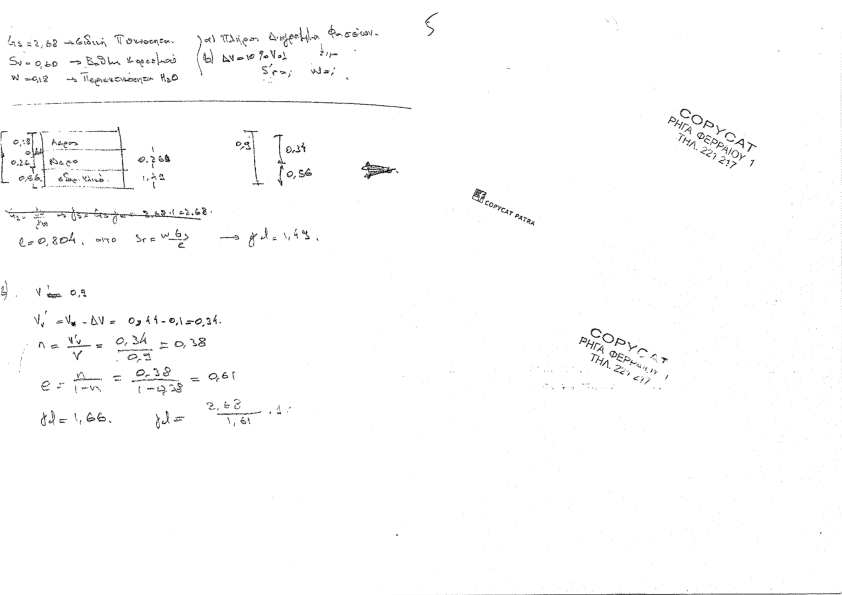 Gs = 2,68 → Ειδική Πυκνότητα.
Sr = 0,60 → Βαθμός Κορεσμού
W = 0,18 → Περιεκτικότητα H2O
α) Πλήρες Διάγραμμα Φάσεων.
(b) ΔV = 10% Vολ
Sr = ; W = ;
5
0,18
0,26
0,56
Αέρας
Νερό
0,268
1,49
0,9
0,34
0,56
Gs = γs/γw → γs = Gs γw = 2,68·1 = 2,68.
e = 0,804, από Sr = w Gs/e → γd = 1,49.
V' = 0,9
Vv' = Vv - ΔV = 0,44 - 0,1 = 0,34.
n = V'v/V = 0,34/0,9 = 0,38
e = n/1-n = 0,38/1-0,38 = 0,61
γd = 1,66. γd = 2,68/1,61 · 1
COPYCAT
ΡΗΓΑ ΦΕΡΡΑΙΟΥ 1
ΤΗΛ. 221 217
COPYCAT PATRA
COPYCAT
ΡΗΓΑ ΦΕΡΡΑΙΟΥ 1
ΤΗΛ. 221 217